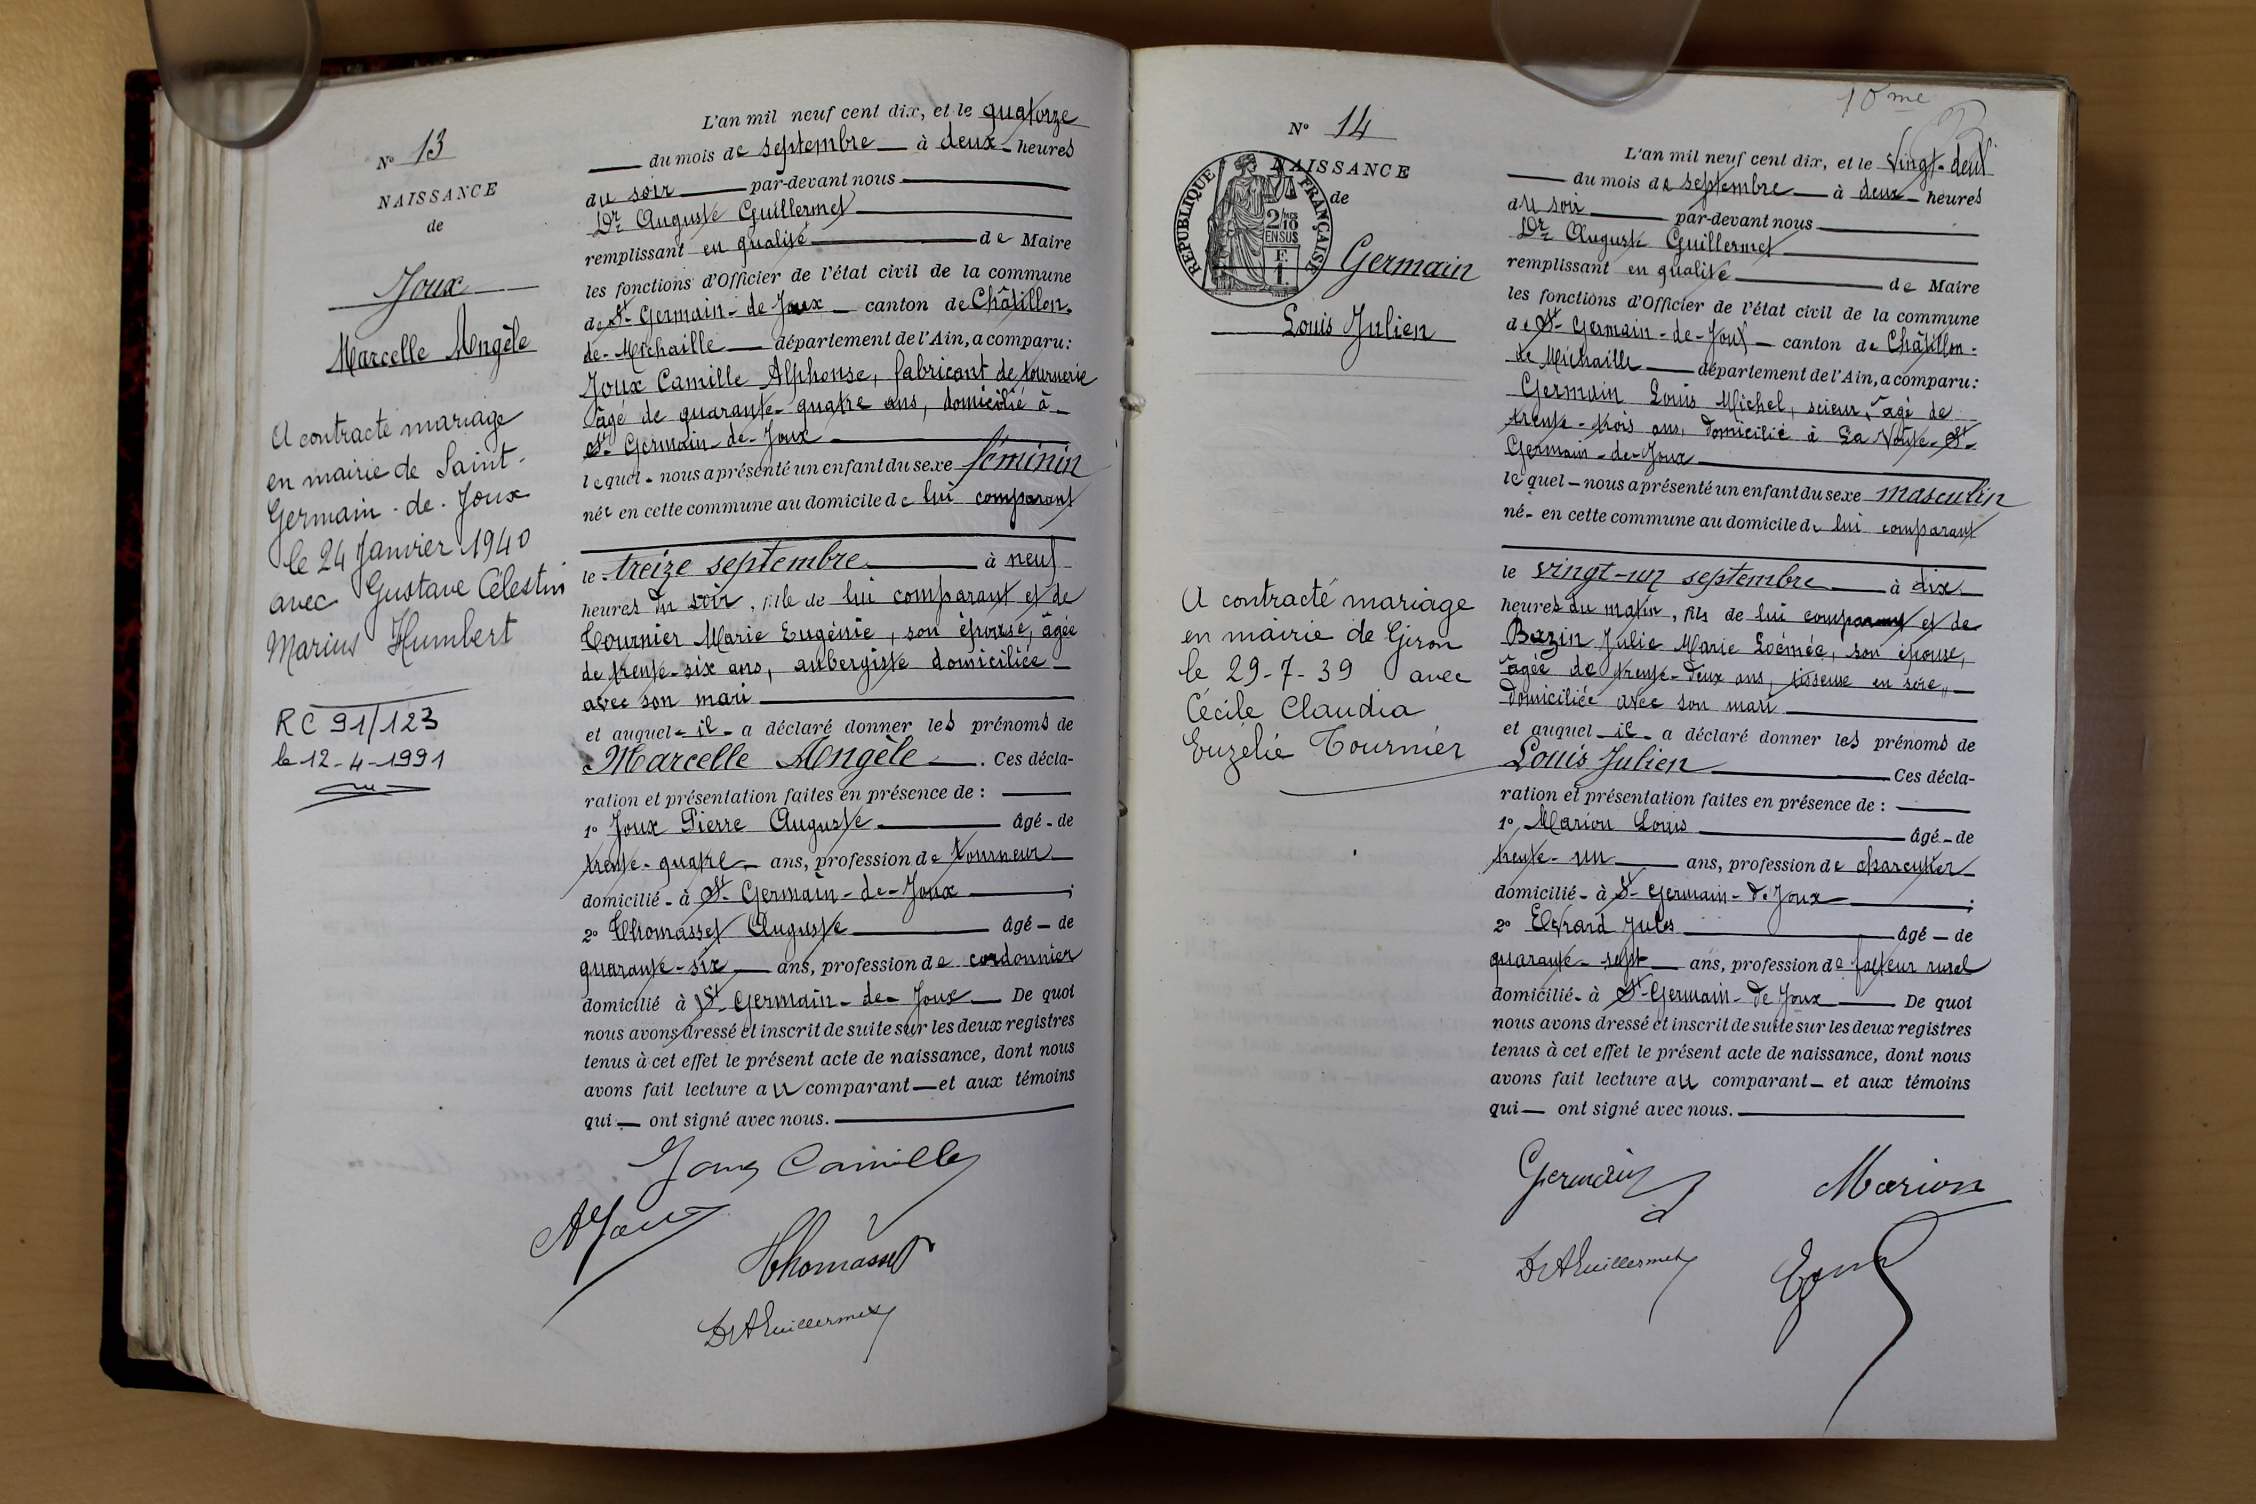 Nº 13
NAISSANCE
de
Joux
Marcelle Angèle
A contracté mariage
en mairie de Saint-
Germain-de-Joux
le 24 Janvier 1940
avec Gustave Célestin
Marius Humbert
RC 91/123
le 12-4-1991
L'an mil neuf cent dix, et le quatorze
du mois de septembre à deux heures
du soir par-devant nous
Dr Auguste Guillermet
remplissant en qualité de Maire
les fonctions d'Officier de l'état civil de la commune
de St-Germain-de-Joux canton de Châtillon-
de-Michaille département de l'Ain, a comparu:
Joux Camille Alphonse, fabricant de tournerie
âgé de quarante-quatre ans, domicilié à
St-Germain-de-Joux
lequel nous a présenté un enfant du sexe féminin
née en cette commune au domicile de lui comparant
le treize septembre à neuf
heures du soir, fille de lui comparant et de
Tournier Marie Eugénie, son épouse, âgée
de trente-six ans, aubergiste domiciliée
avec son mari
et auquel il a déclaré donner les prénoms de
Marcelle Angèle. Ces décla-
ration et présentation faites en présence de :
1º Joux Pierre Auguste âgé de
trente-quatre ans, profession de tourneur
domicilié à St-Germain-de-Joux ;
2º Thomasset Auguste âgé de
quarante-six ans, profession de cordonnier
domicilié à St-Germain-de-Joux De quoi
nous avons dressé et inscrit de suite sur les deux registres
tenus à cet effet le présent acte de naissance, dont nous
avons fait lecture au comparant et aux témoins
qui ont signé avec nous.
Joux Camille
A Joux
Thomasset
Dr A Guillermet
10me
Nº 14
NAISSANCE
de
RÉPUBLIQUE FRANÇAISE
2/10
EN SUS
Germain
Louis Julien
A contracté mariage
en mairie de Giron
le 29-7-39 avec
Cécile Claudia
Euzélie Tournier
L'an mil neuf cent dix, et le vingt-deux
du mois de septembre à deux heures
du soir par-devant nous
Dr Auguste Guillermet
remplissant en qualité de Maire
les fonctions d'Officier de l'état civil de la commune
de St-Germain-de-Joux canton de Châtillon-
de Michaille département de l'Ain, a comparu:
Germain Louis Michel, scieur, âgé de
trente-trois ans, domicilié à La Voute-St-
Germain-de-Joux
lequel nous a présenté un enfant du sexe masculin
né en cette commune au domicile de lui comparant
le vingt-un septembre à dix
heures du matin, fils de lui comparant et de
Bazin Julie Marie, son épouse,
âgée de trente-deux ans, tisseuse en soie,
domiciliée avec son mari
et auquel il a déclaré donner les prénoms de
Louis Julien Ces décla-
ration et présentation faites en présence de :
1º Marion Louis âgé de
trente-un ans, profession de charcutier
domicilié à St-Germain-de Joux ;
2º Jules âgé de
quarante-sept ans, profession de facteur rural
domicilié à St-Germain-de Joux De quoi
nous avons dressé et inscrit de suite sur les deux registres
tenus à cet effet le présent acte de naissance, dont nous
avons fait lecture au comparant et aux témoins
qui ont signé avec nous.
Germain
Marion
Dr A Guillermet